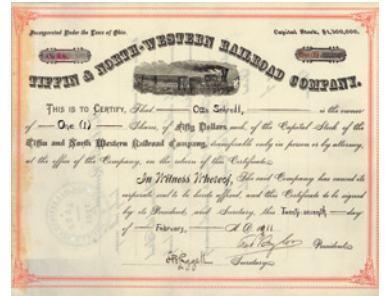 Incorporated Under the Laws of Ohio. Capital Stock, $1,500,000.
TIFFIN & NORTH-WESTERN RAILROAD COMPANY.
THIS IS TO CERTIFY, That Otto Schroll, is the owner
of One (1) Shares, of Fifty Dollars each, of the Capital Stock of the
Tiffin and North Western Railroad Company, transferable only in person or by attorney,
at the office of the Company, on the return of this Certificate.
In Witness Whereof, The said Company has caused its
corporate seal to be hereto affixed, and this Certificate to be signed
by its President, and Secretary, this Twenty-seventh day
of February, A.D. 1911.
President.
Secretary.